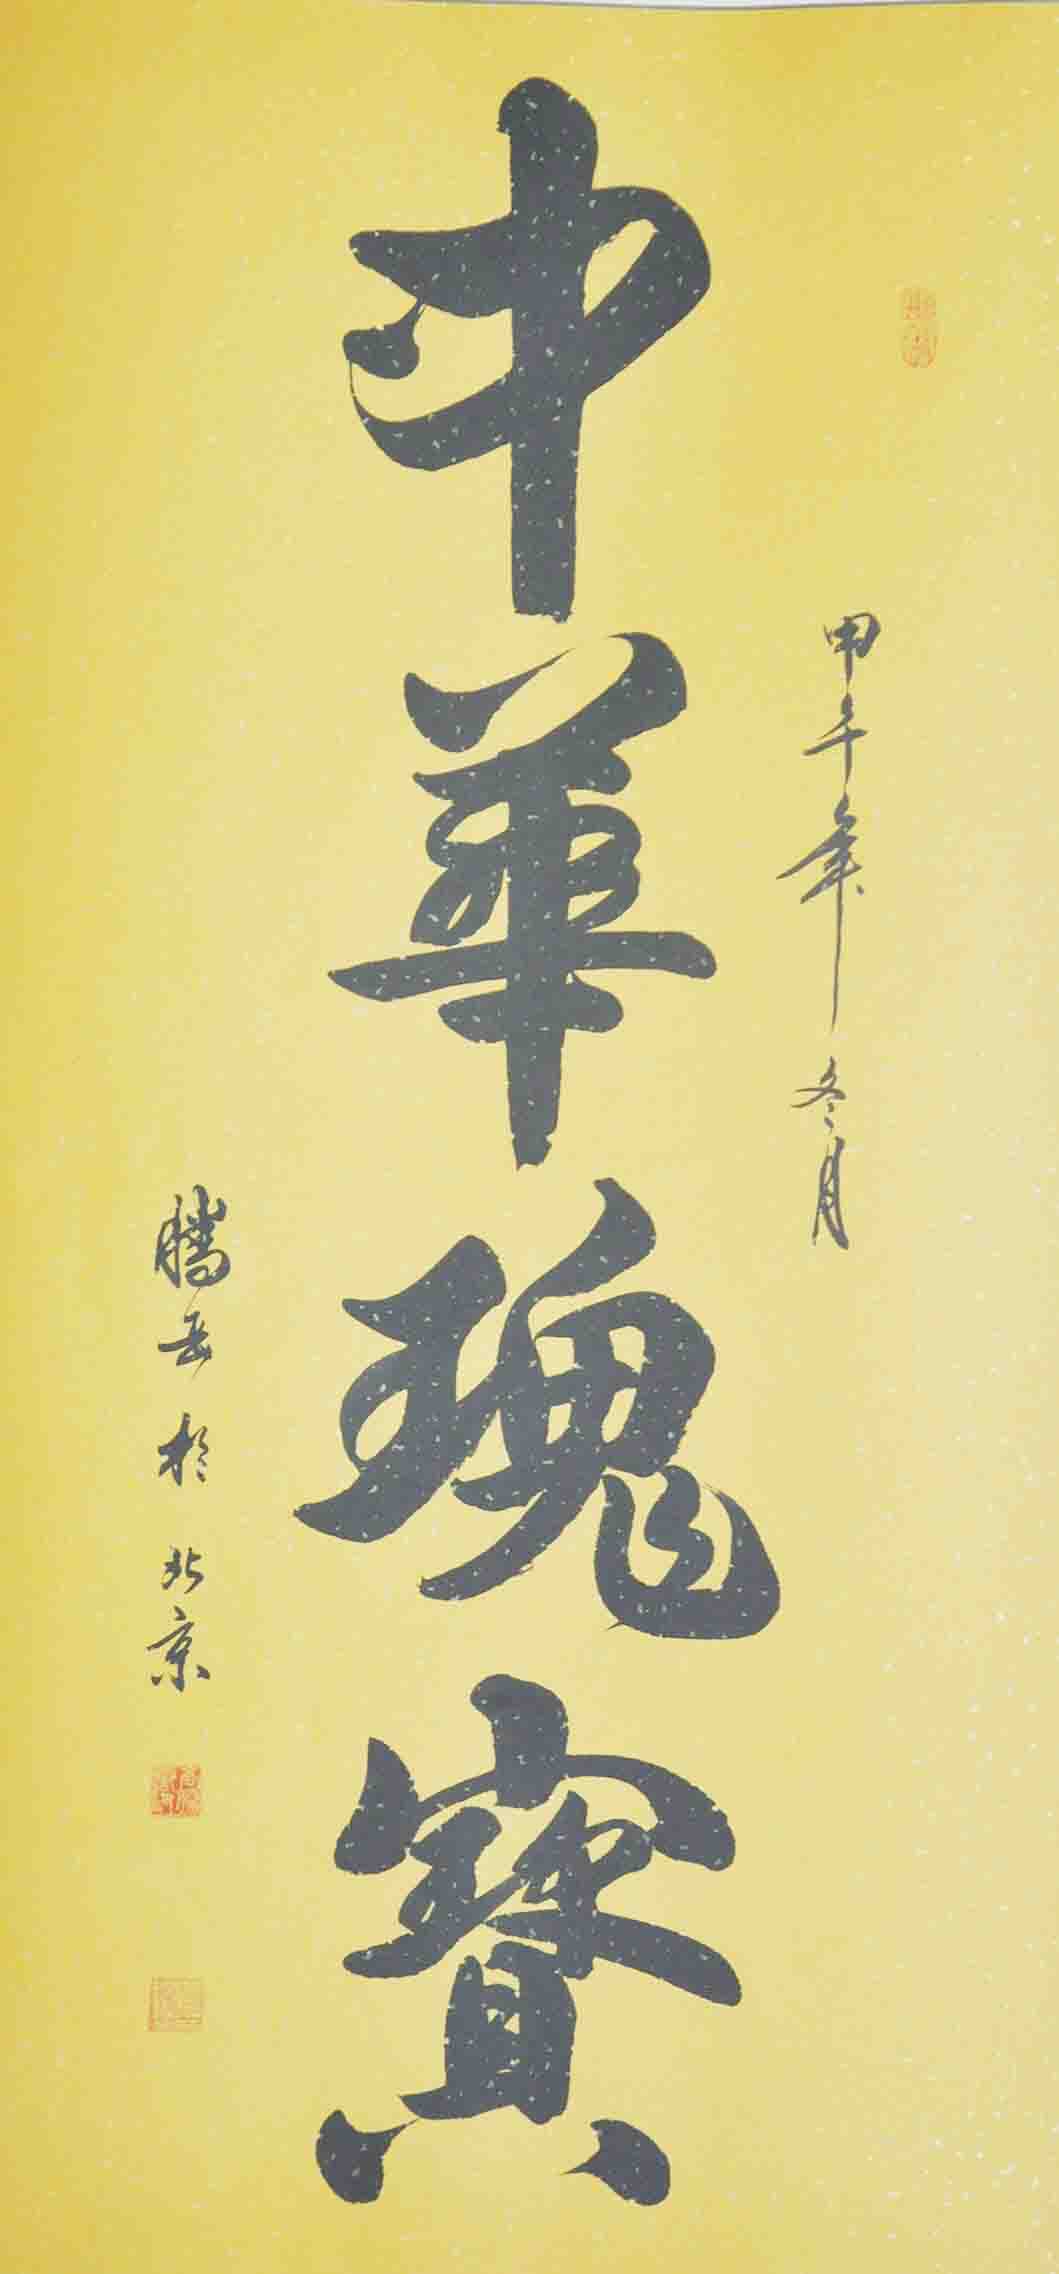 甲午年冬月
中華瑰寳
騰岳於北京